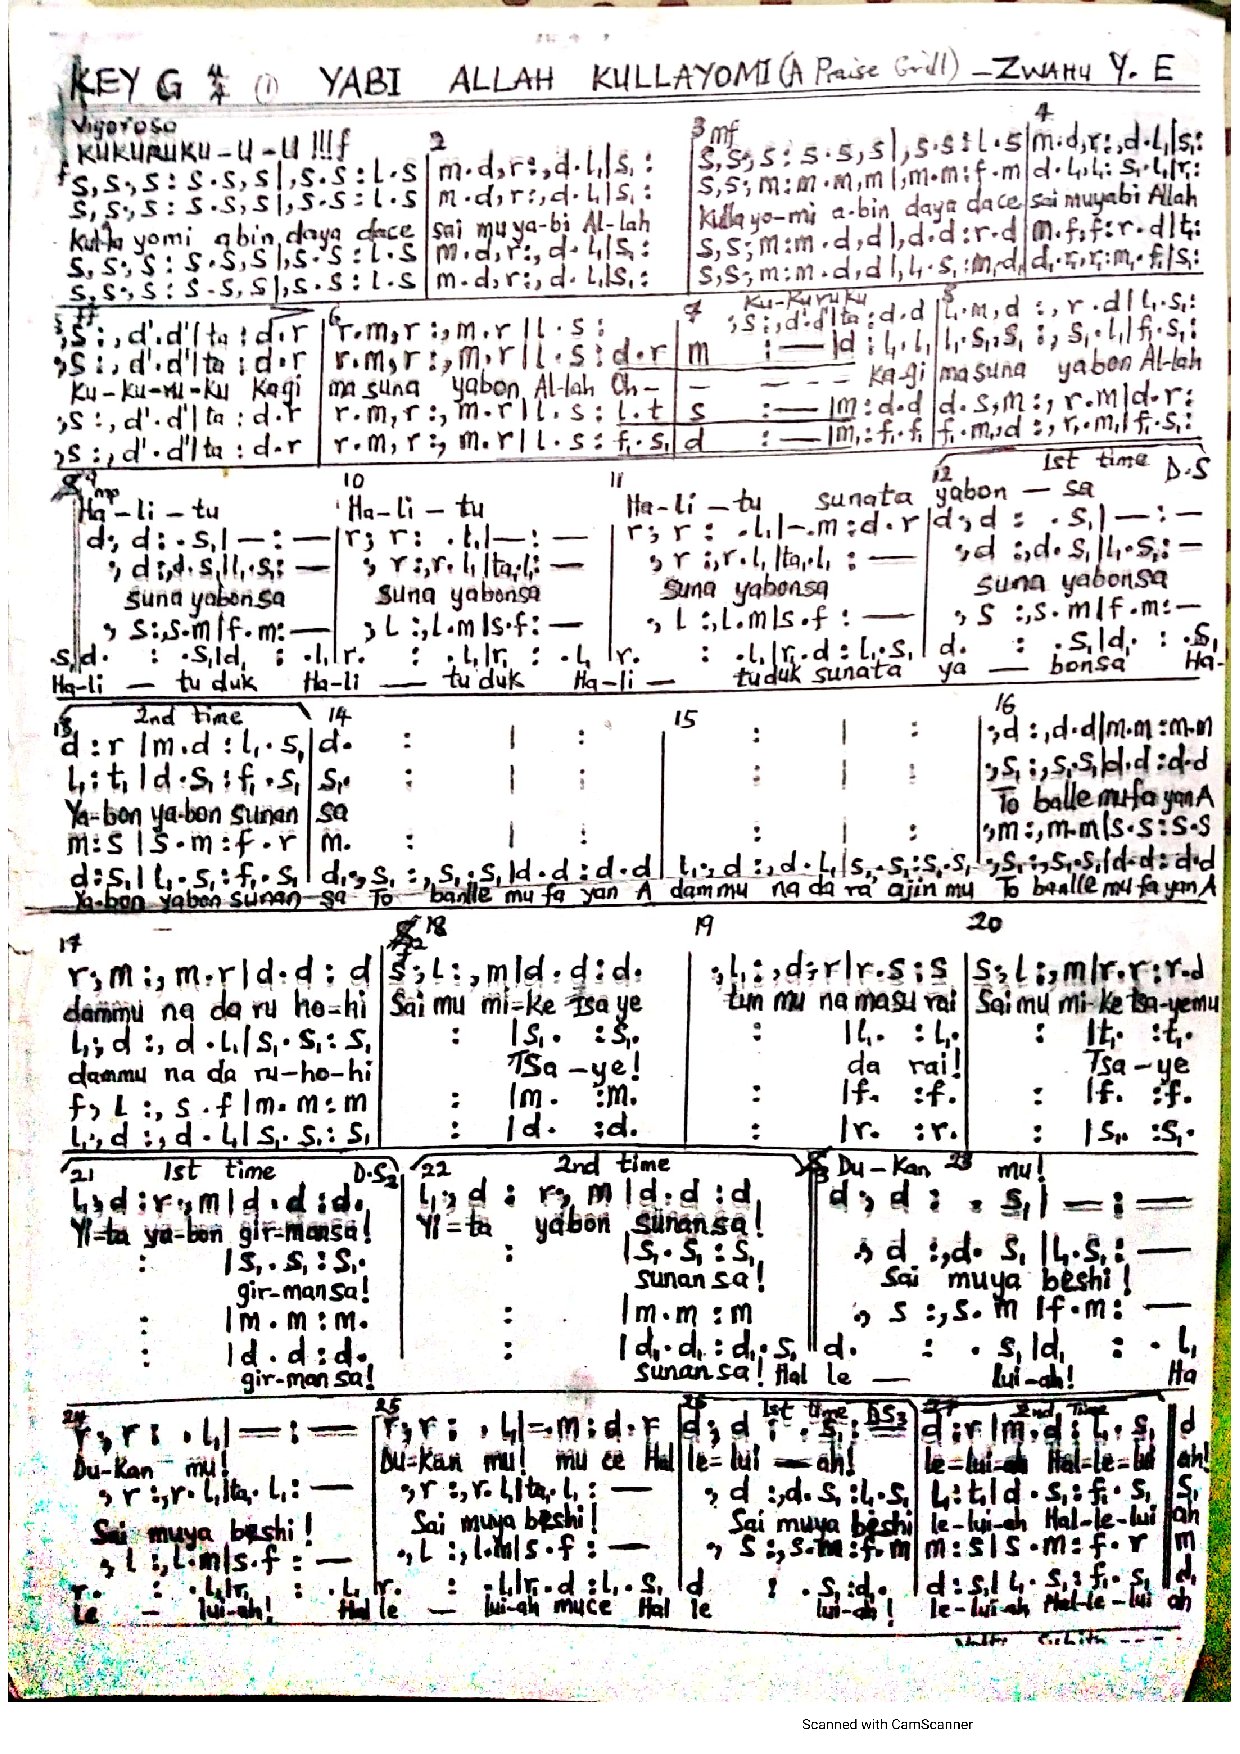 KEY G 4/4 (1) YABI ALLAH KULLAYOMI (A Praise Grill) - ZWAHU Y. E
Vigoroso
KUKURUKU-U-U !!! f 2 3 mf 4
s,s:,s:s.s,s|,s.s:l.s m.d,r:,d.l,|s,: s,s:,s:s.s,s|,s.s:l.s m.d,r:,d.l,|s,:
s,s:,s:s.s,s|,s.s:l.s m.d,r:,d.l,|s,: s,s:,m:m.m,m|,m.m:f.m d.l,l,:s,.l,|r,:
Kulla yomi abin daya dace sai muya-bi Al-lah Kulla yo-mi a-bin daya dace sai muyabi Allah
s,s:,s:s.s,s|,s.s:l.s m.d,r:,d.l,|s,: s,s;m:m.d,d|,d.d:r.d m.f,f:r.d|t,:
s,s:,s:s.s,s|,s.s:l.s m.d,r:,d.l,|s,:
5 ff 6 7 Ku-Ku ruku 8
,s:,d'.d'|ta:d.r r.m,r:,m.r|l.s: ,s:,d'.d'|ta:d.d l,.m,d:,r.d|l,.s,:
,s:,d'.d'|ta:d.r r.m,r:,m.r|l.s:d.r m :—|d:l,.l, l,.s,,s,:,s,.l,|f,.s,:
Ku-ku-ru-ku Kagi ma suna yabon Al-lah Ch- - - - - Ka-gi masuna yabon Al-lah
,s:,d'.d'|ta:d.r r.m,r:,m.r|l.s:l.t s :—|m:d.d d.s,m:,r.m|d.r:
,s:,d'.d'|ta:d.r r.m,r:,m.r|l.s:f,.s, d :—|m,:f,.f, f,.m,,d:,r,.m,|f,.s,:
9 mp 10 11 12 1st time D.S
Ha-li-tu Ha-li-tu Ha-li-tu sunata yabon — sa
d;d:.s,|—:— r;r:.l,|—:— r;r:.l,|—.m:d.r d;d:.s,|—:—
,d:,d.s,|l,.s,:— ,r:,r.l,|ta,.l,:— ,r:,r.l,|ta,.l,:— ,d:,d.s,|l,.s,:—
suna yabonsa suna yabonsa suna yabonsa suna yabonsa
,s:,s.m|f.m:— ,l:,l.m|s.f:— ,l:,l.m|s.f:— ,s:,s.m|f.m:—
.s,|d. :.s,|d, :.l, r. :.l,|r, :.l, r. :.l,|r,.d:l,.s, d. :.s,|d, :.s,
Ha-li — tu duk Ha-li — tu duk Ha-li — tu duk sunata ya — bonsa Ha-
13 2nd time 14 15 16
d:r|m.d:l,.s, d. : | : : | : ,d:,d.d|m.m:m.m
l,:t,|d.s,:f,.s, s,. : | : : | : ,s,:,s,.s,|d.d:d.d
Ya-bon ya-bon sunan sa To balle mufa yan A
m:s|s.m:f.r m. : | : : | : ,m:,m.m|s.s:s.s
d:s,|l,.s,:f,.s, d,.,s,:,s,.s,|d.d:d.d l,;d:,d.l,|s,.s,:s,.s, ,s,:,s,.s,|d.d:d.d
Ya-bon yabon sunan-sa To banlle mu fa yan A dammu na da ra' ajin mu To banlle mu fa yan A
17 18 19 20
r;m:,m.r|d.d:d s;l:,m|d.d:d. ,l,:,d;r|r.s:s s;l:,m|r.r:r.d
dammu na da ru ho-hi Sai mu mi-ke Tsa ye tun mu na masu rai Sai mu mi-ke tsa-yemu
l,;d:,d.l,|s,.s,:s, : |s,. :s,. : |l,. :l,. : |t,. :t,.
dammu na da ru-ho-hi TSa-ye! da rai! Tsa-ye
f;l:,s.f|m.m:m : |m. :m. : |f. :f. : |f. :f.
l,;d:,d.l,|s,.s,:s, : |d. :d. : |r. :r. : |s,. :s,.
21 1st time D.S2 22 2nd time Du-Kan 23 mu!
l,;d:r;m|d.d:d. l,;d:r;m|d.d:d d;d:.s,|—:—
Yi-ta ya-bon gir-mansa! Yi-ta yabon sunansa!
: |s,.s,:s,. : |s,.s,:s, ,d:,d.s,|l,.s,:—
gir-mansa! sunansa! Sai muya beshi!
: |m.m:m. : |m.m:m ,s:,s.m|f.m:—
: |d.d:d. : |d,.d,:d,.s, d. :.s,|d, :.l,
gir-mansa! sunansa! Hal le — lui-ah! Ha
24 25 26 1st time DS3 27 2nd Time
r;r:.l,|—:— r;r:.l,|—.m:d.r d;d:.s,:— d:r|m.d:l,.s, d
Du-Kan mu! Du-Kan mu! mu ce Hal le-lui — ah! le-lui-ah Hal-le-lui ah!
,r:,r.l,|ta,.l,:— ,r:,r.l,|ta,.l,:— ,d:,d.s,:l,.s, l,:t,|d.s,:f,.s, s,
Sai muya beshi! Sai muya beshi! Sai muya beshi le-lui-ah Hal-le-lui ah
,l:,l.m|s.f:— ,l:,l.m|s.f:— ,s:,s.m:f.m m:s|s.m:f.r m
r. :.l,|r, :.l, r. :.l,|r,.d:l,.s, d :.s,:d,. d:s,|l,.s,:f,.s, d,
le — lui-ah! Hal le — lui-ah muce Hal le lui-ah! le-lui-ah Hal-le-lui ah
Scanned with CamScanner